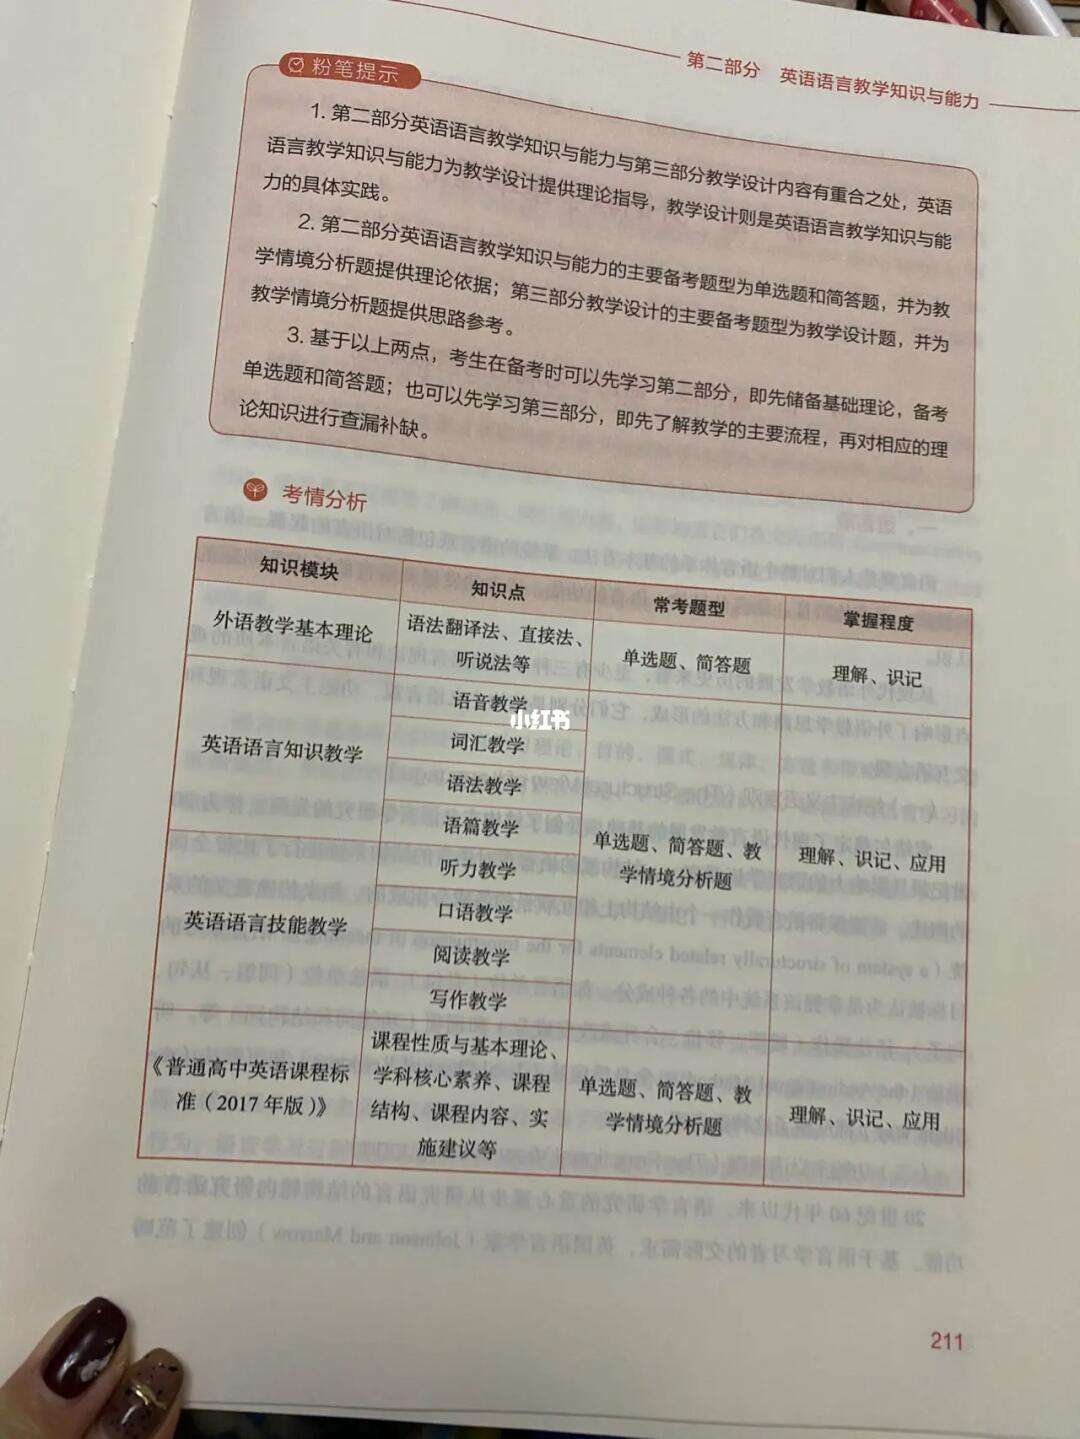 第二部分 英语语言教学知识与能力
粉笔提示
1. 第二部分英语语言教学知识与能力与第三部分教学设计内容有重合之处，英语
语言教学知识与能力为教学设计提供理论指导，教学设计则是英语语言教学知识与能
力的具体实践。
2. 第二部分英语语言教学知识与能力的主要备考题型为单选题和简答题，并为教
学情境分析题提供理论依据；第三部分教学设计的主要备考题型为教学设计题，并为
教学情境分析题提供思路参考。
3. 基于以上两点，考生在备考时可以先学习第二部分，即先储备基础理论，备考
单选题和简答题；也可以先学习第三部分，即先了解教学的主要流程，再对相应的理
论知识进行查漏补缺。
考情分析
知识模块 知识点 常考题型 掌握程度
外语教学基本理论
语法翻译法、直接法、
听说法等
单选题、简答题
理解、识记
英语语言知识教学
语音教学
小红书
词汇教学
语法教学
语篇教学
英语语言技能教学
听力教学
口语教学
阅读教学
写作教学
单选题、简答题、教
学情境分析题
理解、识记、应用
《普通高中英语课程标
准（2017年版）》
课程性质与基本理论、
学科核心素养、课程
结构、课程内容、实
施建议等
单选题、简答题、教
学情境分析题
理解、识记、应用
211